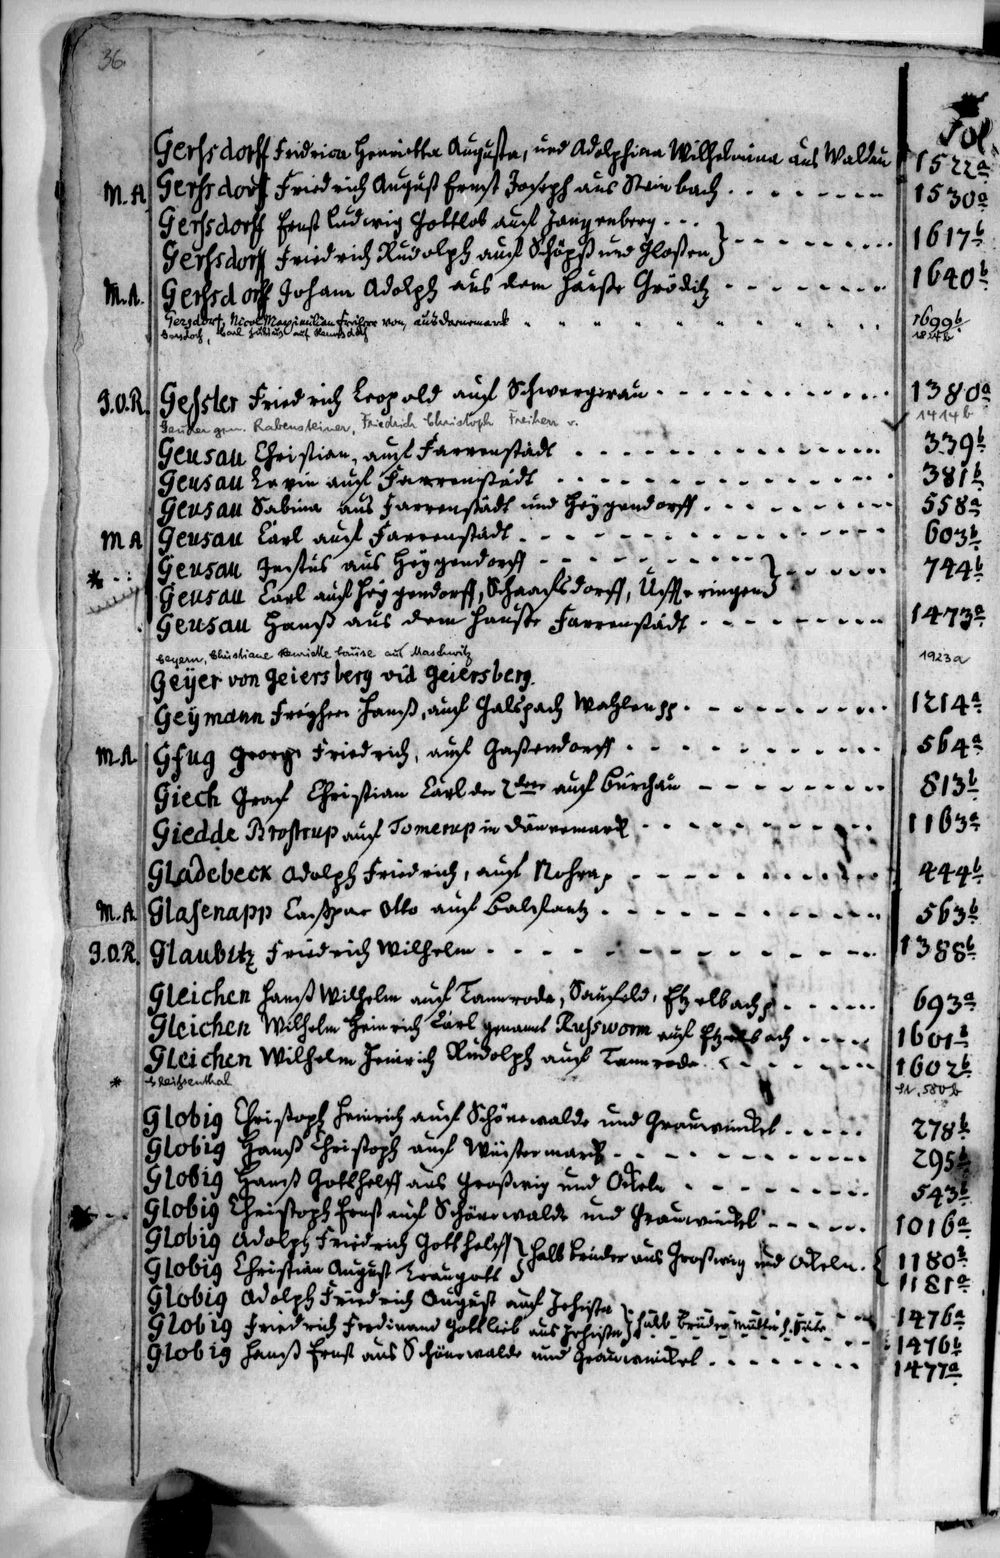 36.
Fol.
Gersdorff Fridrica Henrietta Augusta, und Adolphina Wilhelmina aus Waldau 1522a
M.A. Gersdorff Friedrich August Ernst Joseph aus Steinbach 1530a
Gersdorff Ernst Ludwig Gottlob auf
Gersdorff Friedrich Rudolph auf Schöpß und Gloßen } 1617b
M.A. Gersdorff Joham Adolph aus dem Hauße Gröditz 1640b
Gersdorf, Nicol Maximilian Freiherr von, aus Dännemark 1699b
Gersdorf, Carl auf
J.O.R. Gessler Friedrich Leopold auf Schwergerau 1380a
gen. Rabensteiner, Friedrich Christoph Freiherr v. 1414b
Geusau Christian, auf Farrenstädt 339b
Geusau Levin auf Farrenstädt 381b
Geusau Sabina aus Farrenstädt und Heygendorff 558a
M A Geusau Carl auf Farrenstädt 603b
Geusau Justus aus Heygendorff
Geusau Carl auf Heygendorff, Schaafsdorff, } 744b
Geusau Hanß aus dem Hauße Farrenstädt 1473a
Geyern, Christiane Henriette Louise auf Maschwitz 1923a
Geyer von Geiersberg vid Geiersberg.
Geymann Freyherr Hanß, auf Galspach Wahlen pp. 1214a
M.A. Gfug Georg Friedrich, auf 564a
Giech Graf Christian Carl der 2der auf Burchau 813b
Giedde Brostrup auf Tomerup in Dännemark 1163a
Gladebeck Adolph Friedrich, auf Nohra, 444b
M.A. Glasenapp Caßpar Otto auf 563b
J.O.R. Glaubitz Friedrich Wilhelm 1388b
Gleichen Hanß Wilhelm auf Tannroda, Saufeld, Etzelbach p 693a
Gleichen Wilhelm Heinrich Carl genannt Russworm auf Etzelbach 1601
Gleichen Wilhelm Heinrich Rudolph auf Tannroda 1602b
* Gleissenthal 580b
Globig Christoph Heinrich auf Schönewalde und Grauwinckel 278b
Globig Hanß Christoph auf Wüstermarck 295
Globig Hanß Gotthelff aus Großwig und Ockeln 543b
Globig Christoph Ernst auf Schönewalde und Grauwinckel 1016a
Globig Adolph Friedrich Gotthelff
Globig Christian August Traugott } halb Brüder aus Großwig und Ockeln. { 1180
1181a
Globig Adolph Friedrich August auf 1476a
Globig Friedrich Ferdinand Gottlieb aus } halb Brüder 1476b
Globig Hanß Ernst aus Schönewalde und Grauwinckel 1477a